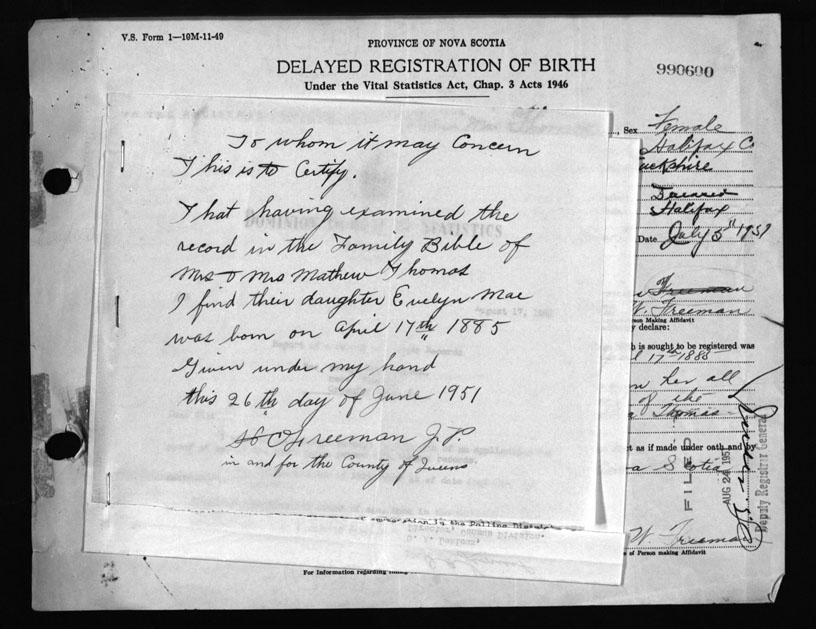 V.S. Form 1—10M-11-49
PROVINCE OF NOVA SCOTIA
DELAYED REGISTRATION OF BIRTH
Under the Vital Statistics Act, Chap. 3 Acts 1946
990600
To whom it may Concern
This is to Certify.
That having examined the
record in the Family Bible of
Mrs & Mrs Mathew Thomas
I find their daughter Evelyn Mae
was born on April 17th 1885
Given under my hand
this 26th day of June 1951
Freeman J.P.
in and for the County of Queens
Sex Female
Halifax Co
Halifax
Date July 5th 1951
Freeman
W. Freeman
Person Making Affidavit
declare:
is sought to be registered was
17th 1885
her all
of the
Thomas
act as if made under oath and by
Scotia
FILED
AUG 24 1951
Deputy Registrar General
W. Freeman
of Person making Affidavit
August 17,
in the Police District
For Information regarding filing